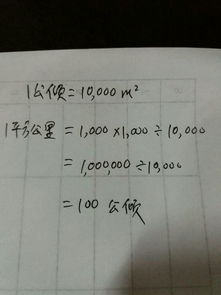 1公顷=10,000 m²
1平方公里 =1,000×1,000÷10,000
=1,000,000÷10,000
=100 公顷